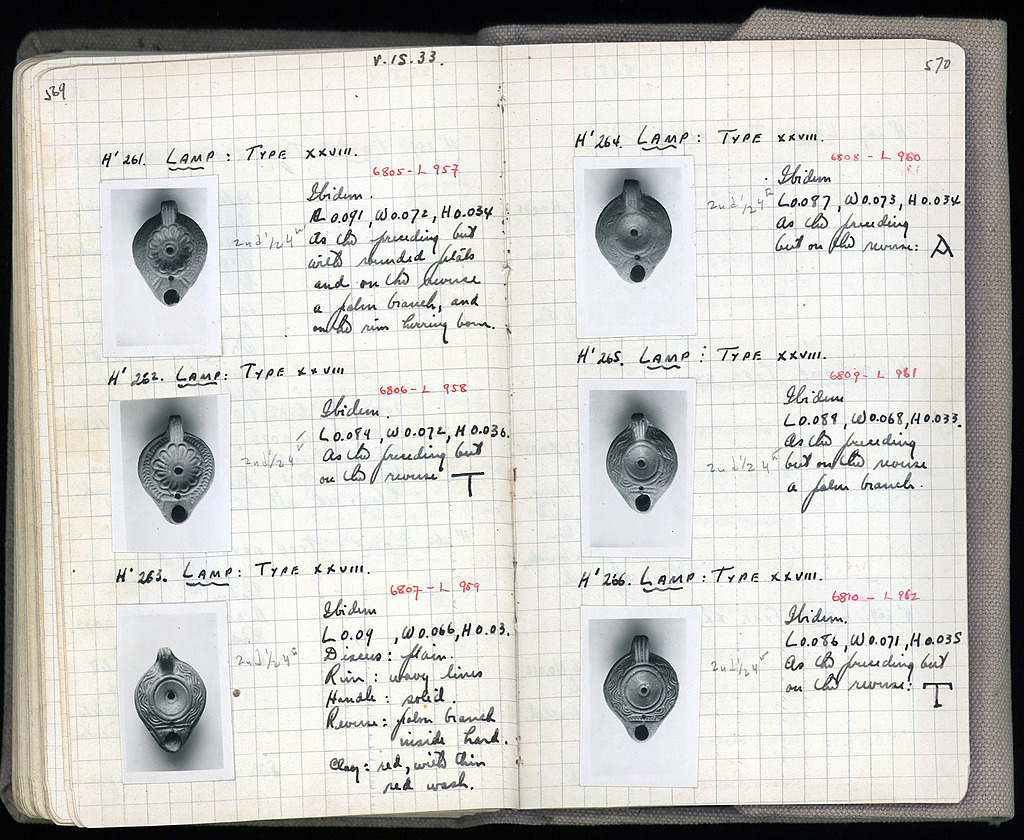 569
V.15.33.
H' 261. LAMP: TYPE XXVIII.
6805-L 957
Ibidem.
L 0.091, W 0.072, H 0.034
2nd 1/2 4
as the preceding but
with rounded petals
and on the reverse
a palm branch, and
on the rim herring bone.
H' 262. LAMP: TYPE XXVIII
6806-L 958
Ibidem.
L 0.089, W 0.072, H 0.036.
2nd 1/2 4
As the preceding but
on the reverse T
H' 263. LAMP: TYPE XXVIII.
6807-L 959
Ibidem
L 0.09 , W 0.066, H 0.03.
2nd 1/2 4
Discus: plain.
Rim: wavy lines
Handle: solid.
Reverse: palm branch
inside
Clay: red, with thin
red wash.
570
H' 264. LAMP: TYPE XXVIII.
6808-L 960
Ibidem
2nd 1/2 4
L 0.087, W 0.073, H 0.034
As the preceding
but on the reverse: A
H' 265. LAMP: TYPE XXVIII.
6809-L 961
Ibidem
L 0.088, W 0.068, H 0.033.
As the preceding
2nd 1/2 4
but on the reverse
a palm branch.
H' 266. LAMP: TYPE XXVIII.
6810-L 962
Ibidem.
L 0.086, W 0.071, H 0.035
2nd 1/2 4
As the preceding but
on the reverse: T